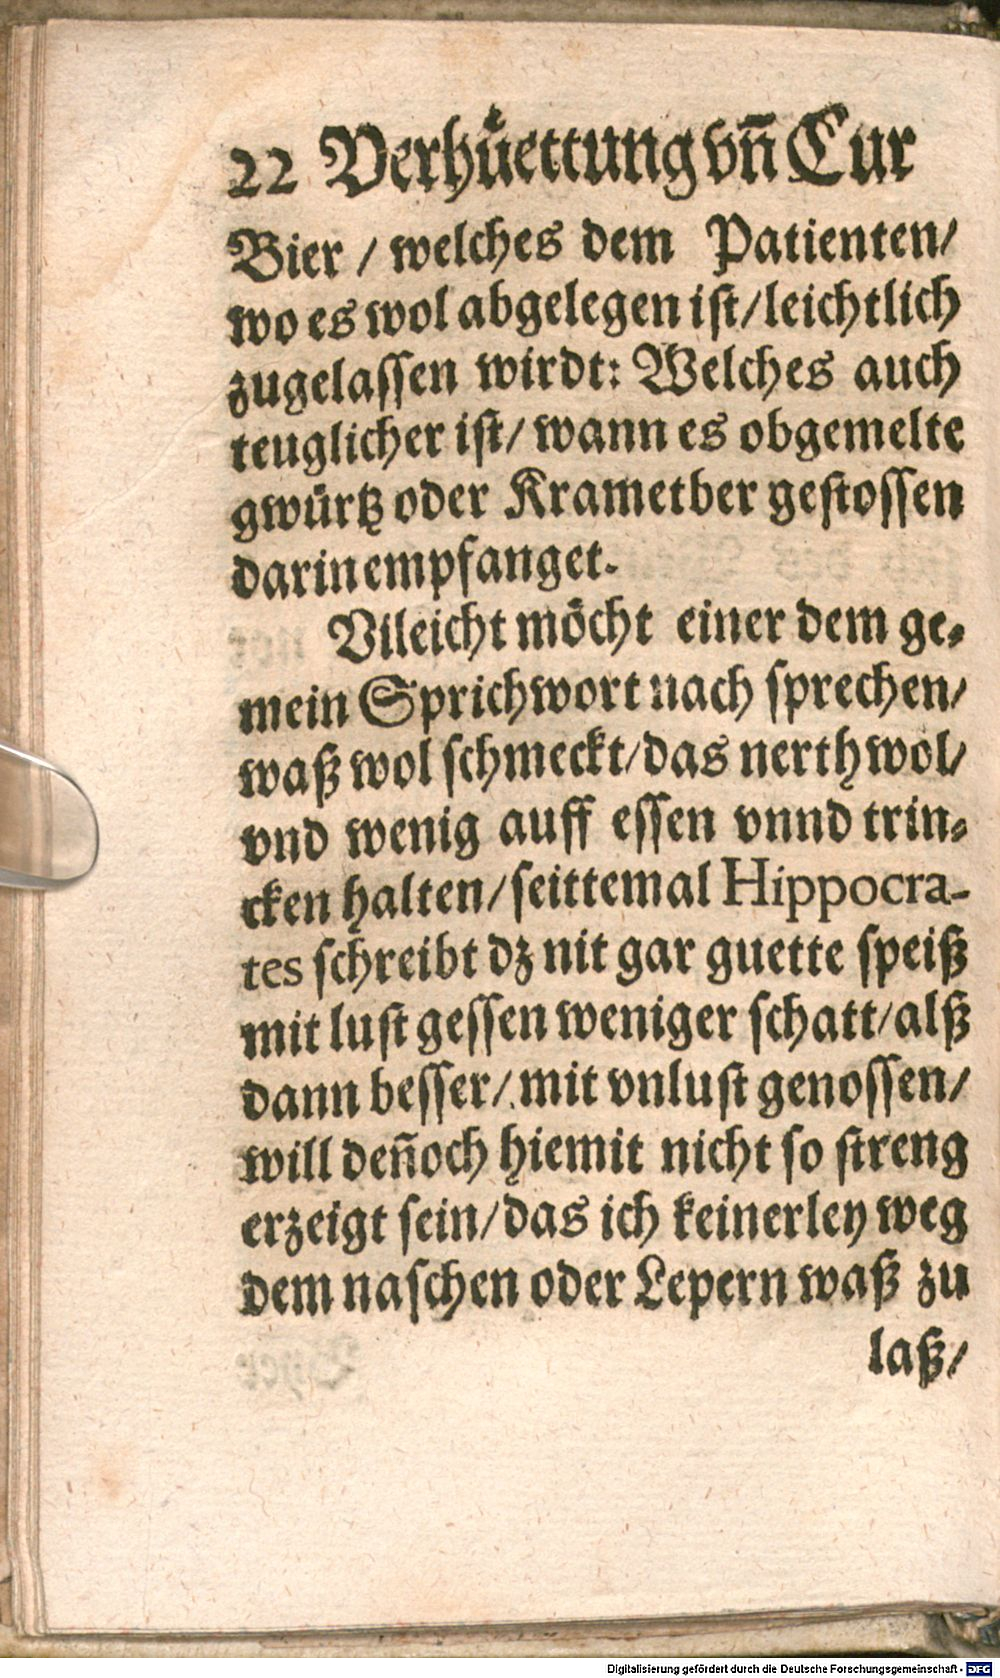 22 Verhuͤettung vñ Cur
Bier / welches dem Patienten/
wo es wol abgelegen ist/leichtlich
zugelassen wirdt: Welches auch
teuglicher ist/ wann es obgemelte
gwürtz oder Krametber gestossen
darin empfanget.
Vileicht möcht einer dem ge-
mein Sprichwort nach sprechen/
waß wol schmeckt/das nerth wol/
vnd wenig auff essen vnnd trin-
cken halten/seittemal Hippocra-
tes schreibt dz nit gar guette speiß
mit lust gessen weniger schatt/alß
dann besser/ mit vnlust genossen/
will deñoch hiemit nicht so streng
erzeigt sein/das ich keinerley weg
dem naschen oder Lepern waß zu
laß/
Digitalisierung gefördert durch die Deutsche Forschungsgemeinschaft - DFG